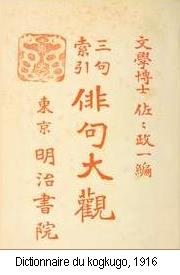 文學博士 佐々政一編
三句索引 俳句大觀
東京 明治書院
Dictionnaire du kogkugo, 1916